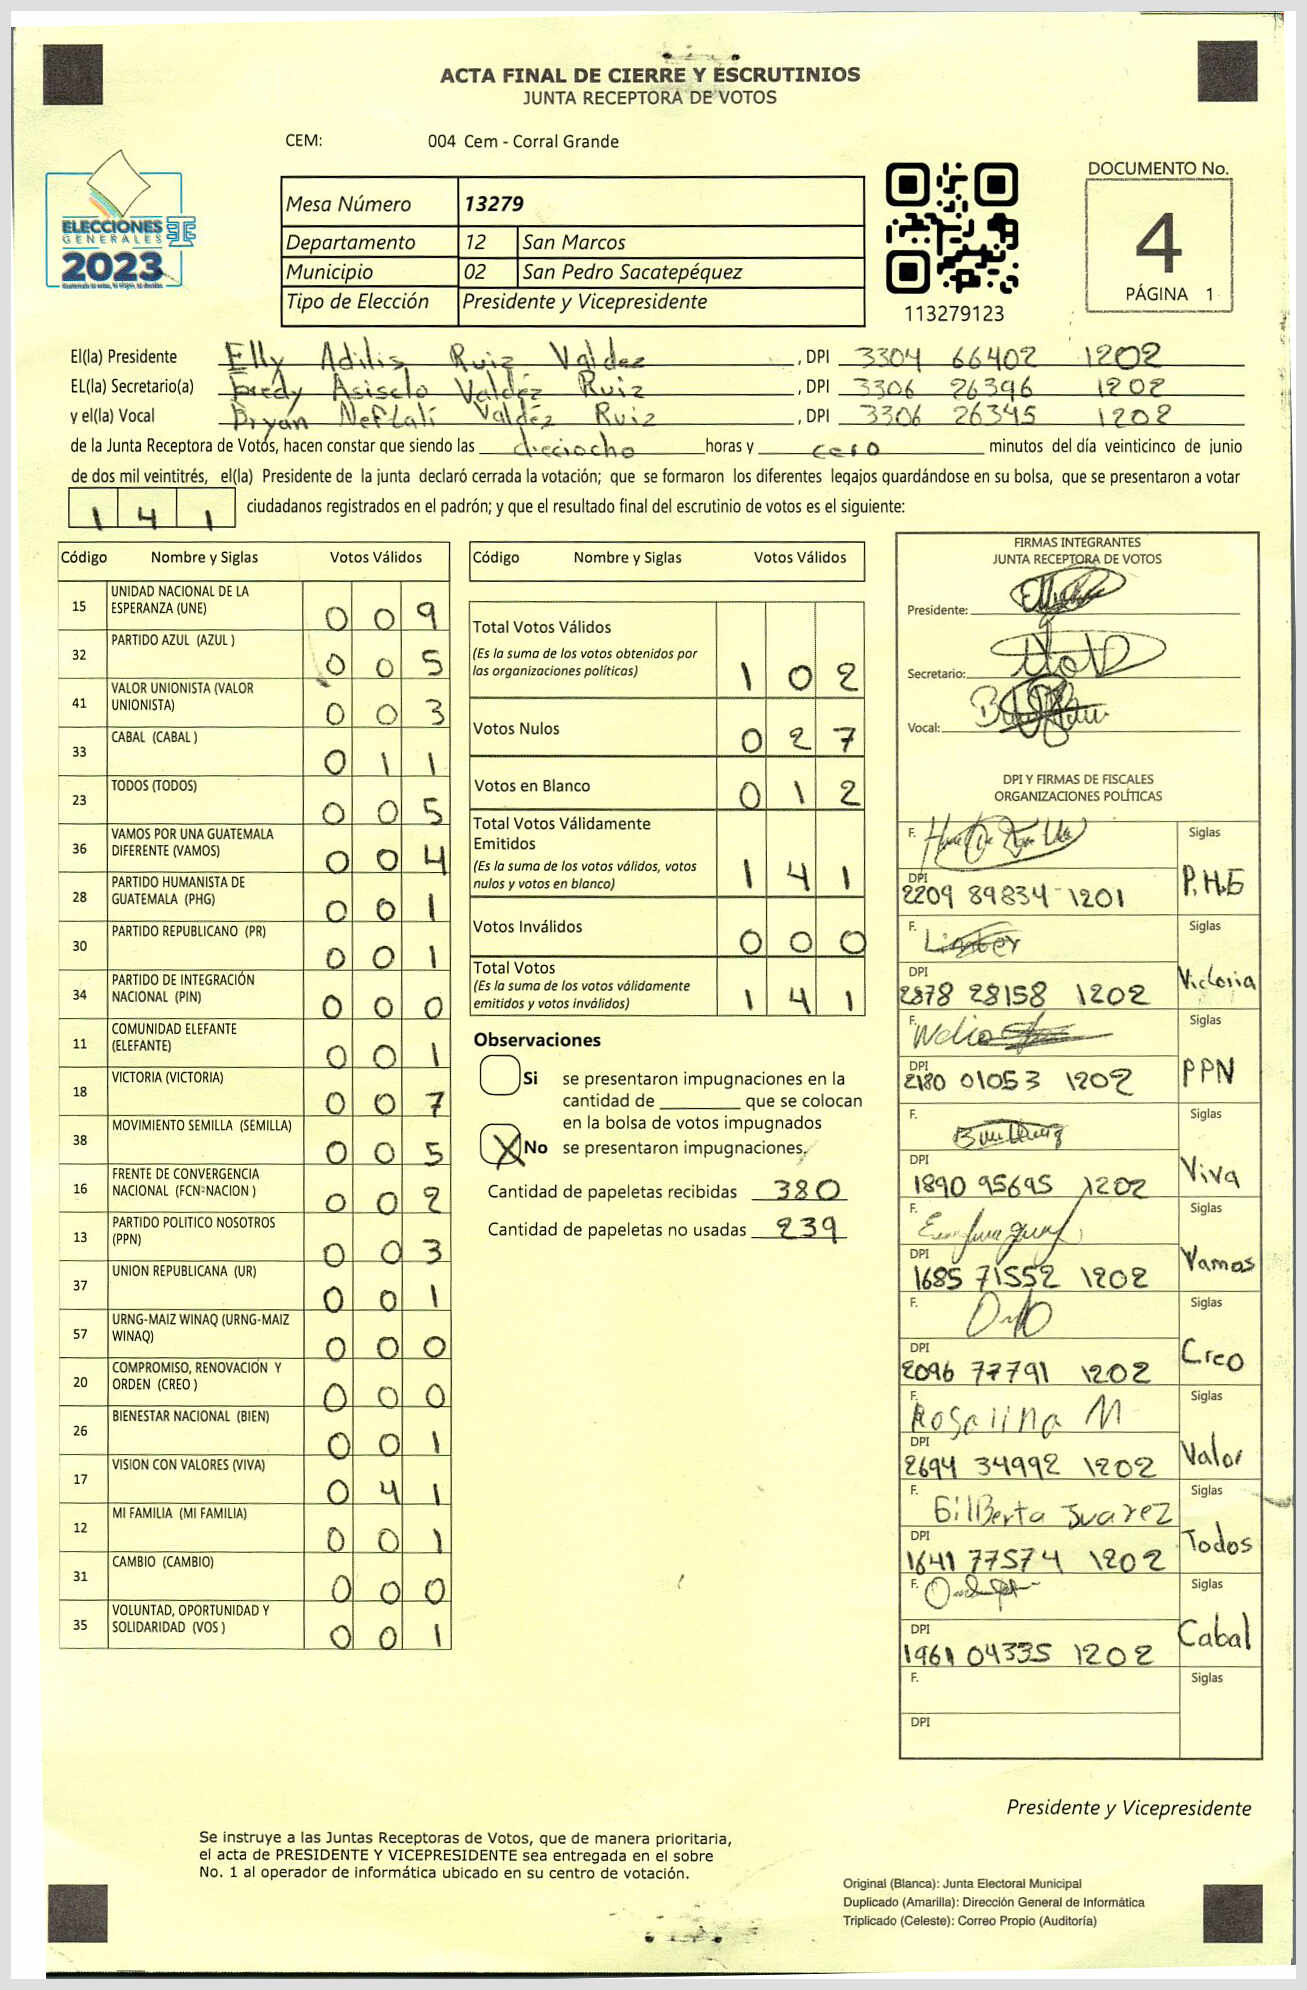 ACTA FINAL DE CIERRE Y ESCRUTINIOS
JUNTA RECEPTORA DE VOTOS
CEM: 004 Cem - Corral Grande
ELECCIONES
GENERALES
2023
Mesa Número 13279
Departamento 12 San Marcos
Municipio 02 San Pedro Sacatepéquez
Tipo de Elección Presidente y Vicepresidente
113279123
DOCUMENTO No.
4
PÁGINA 1
El(la) Presidente Elly Adilis Ruiz Valdez, DPI 3304 66402 1202
EL(la) Secretario(a) Fredy Asiselo Valdéz Ruiz, DPI 3306 26396 1202
y el(la) Vocal Bryan Neftalí Valdéz Ruiz, DPI 3306 26345 1202
de la Junta Receptora de Votos, hacen constar que siendo las dieciocho horas y cero minutos del día veinticinco de junio
de dos mil veintitrés, el(la) Presidente de la junta declaró cerrada la votación; que se formaron los diferentes legajos guardándose en su bolsa, que se presentaron a votar
141 ciudadanos registrados en el padrón; y que el resultado final del escrutinio de votos es el siguiente:
Código Nombre y Siglas Votos Válidos
15 UNIDAD NACIONAL DE LA ESPERANZA (UNE) 009
32 PARTIDO AZUL (AZUL ) 005
41 VALOR UNIONISTA (VALOR UNIONISTA) 003
33 CABAL (CABAL ) 011
23 TODOS (TODOS) 005
36 VAMOS POR UNA GUATEMALA DIFERENTE (VAMOS) 004
28 PARTIDO HUMANISTA DE GUATEMALA (PHG) 001
30 PARTIDO REPUBLICANO (PR) 001
34 PARTIDO DE INTEGRACIÓN NACIONAL (PIN) 000
11 COMUNIDAD ELEFANTE (ELEFANTE) 001
18 VICTORIA (VICTORIA) 007
38 MOVIMIENTO SEMILLA (SEMILLA) 005
16 FRENTE DE CONVERGENCIA NACIONAL (FCN-NACION ) 002
13 PARTIDO POLITICO NOSOTROS (PPN) 003
37 UNION REPUBLICANA (UR) 001
57 URNG-MAIZ WINAQ (URNG-MAIZ WINAQ) 000
20 COMPROMISO, RENOVACIÓN Y ORDEN (CREO ) 000
26 BIENESTAR NACIONAL (BIEN) 001
17 VISION CON VALORES (VIVA) 041
12 MI FAMILIA (MI FAMILIA) 001
31 CAMBIO (CAMBIO) 000
35 VOLUNTAD, OPORTUNIDAD Y SOLIDARIDAD (VOS ) 001
Código Nombre y Siglas Votos Válidos
Total Votos Válidos 102
(Es la suma de los votos obtenidos por
las organizaciones políticas)
Votos Nulos 027
Votos en Blanco 012
Total Votos Válidamente
Emitidos 141
(Es la suma de los votos válidos, votos
nulos y votos en blanco)
Votos Inválidos 000
Total Votos 141
(Es la suma de los votos válidamente
emitidos y votos inválidos)
Observaciones
Si se presentaron impugnaciones en la
cantidad de ________ que se colocan
en la bolsa de votos impugnados
X No se presentaron impugnaciones.
Cantidad de papeletas recibidas 380
Cantidad de papeletas no usadas 239
FIRMAS INTEGRANTES
JUNTA RECEPTORA DE VOTOS
Presidente:
Secretario:
Vocal:
DPI Y FIRMAS DE FISCALES
ORGANIZACIONES POLÍTICAS
F. Siglas
DPI 2209 89834 1201 P.H.G
F. Siglas
DPI 2878 28158 1202 Victoria
F. Siglas
DPI 2180 01053 1202 PPN
F. Siglas
DPI 1890 95695 1202 Viva
F. Siglas
DPI 1685 71552 1202 Vamos
F. Siglas
DPI 2096 77791 1202 Creo
F. Rosalina M Siglas
DPI 2694 34992 1202 Valor
F. Gilberta Juarez Siglas
DPI 1641 77574 1202 Todos
F. Siglas
DPI 1961 04335 1202 Cabal
F. Siglas
DPI
Presidente y Vicepresidente
Se instruye a las Juntas Receptoras de Votos, que de manera prioritaria,
el acta de PRESIDENTE Y VICEPRESIDENTE sea entregada en el sobre
No. 1 al operador de informática ubicado en su centro de votación.
Original (Blanca): Junta Electoral Municipal
Duplicado (Amarilla): Dirección General de Informática
Triplicado (Celeste): Correo Propio (Auditoría)